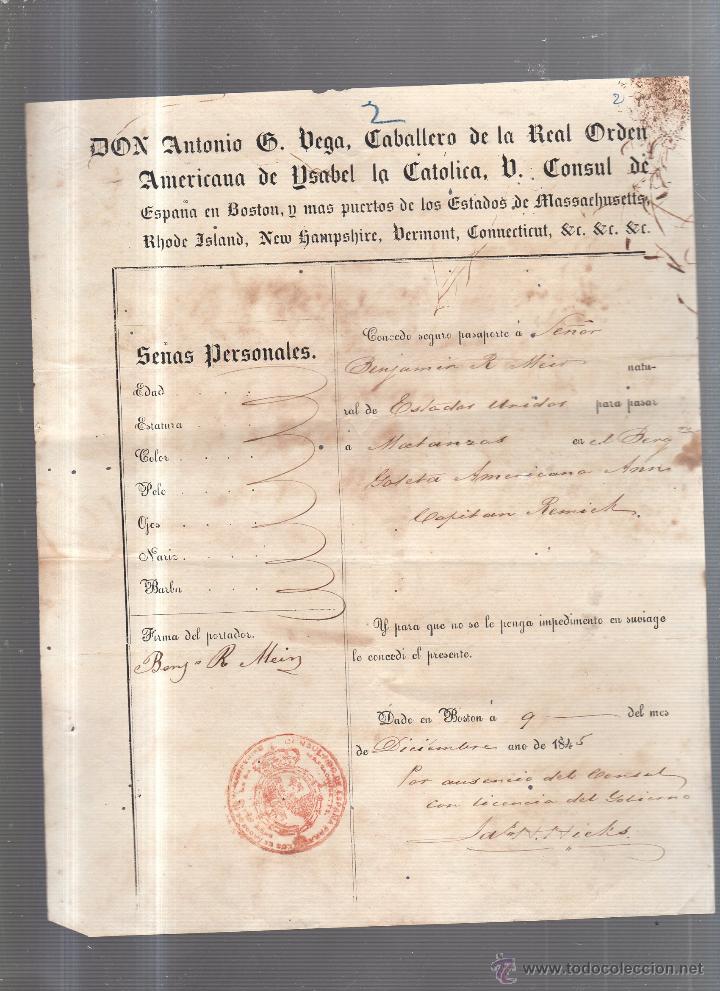 2
2
DON Antonio G. Vega, Caballero de la Real Orden
Americana de Ysabel la Católica, V. Consul de
España en Boston, y mas puertos de los Estados de Massachusetts,
Rhode Island, New Hampshire, Vermont, Connecticut, &c. &c. &c.
Señas Personales.
Edad
Estatura
Color
Pelo
Ojos
Nariz
Barba
Firma del portador.
Benjn R
Concedo seguro pasaporte á Señor
Benjamin R natu-
ral de Estados Unidos para pasar
á Matanzas en el Bergn
Goleta Americana Ann
Capitan Remick
Y para que no se le ponga impedimento en suviage
le concedi el presente.
Dado en Boston á 9 del mes
de Diciembre ano de 1845
Por ausencia del Consul
con licencia del Gobierno
Hicks
CONSULADO DE ESPAÑA
todocoleccion
www.todocoleccion.net